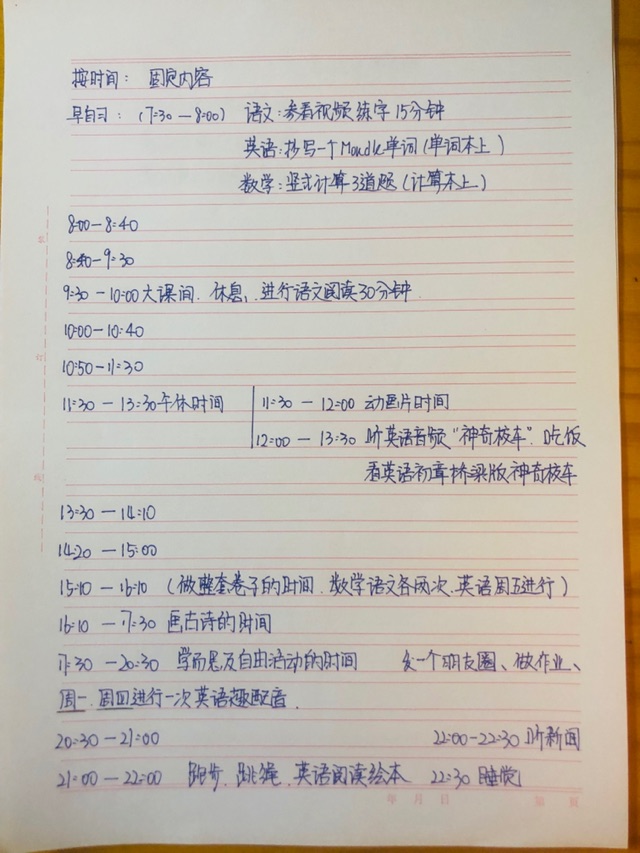 按时间： 固定内容
早自习：（7:30—8:00） 语文:参看视频练字15分钟
英语:抄写一个Mondle单词(单词本上)
数学:竖式计算3道题(计算本上)
8:00—8:40
8:40—9:30
9:30—10:00大课间、休息，进行语文阅读30分钟
10:00—10:40
10:50—11:30
11:30—13:30午休时间 11:30—12:00 动画片时间
12:00—13:30 听英语音频“神奇校车” 吃饭
看英语初章桥梁版神奇校车
13:30—14:10
14:20—15:00
15:10—16:10 （做整套卷子的时间、数学语文各两次、英语周五进行）
16:10—17:30 画古诗的时间
17:30—20:30 学而思及自由活动的时间 发一个朋友圈、做作业、
周一、周四进行一次英语趣配音.
20:30—21:00 22:00—22:30 听新闻
21:00—22:00 跑步、跳绳、英语阅读绘本 22:30 睡觉
年 月 日 第 页